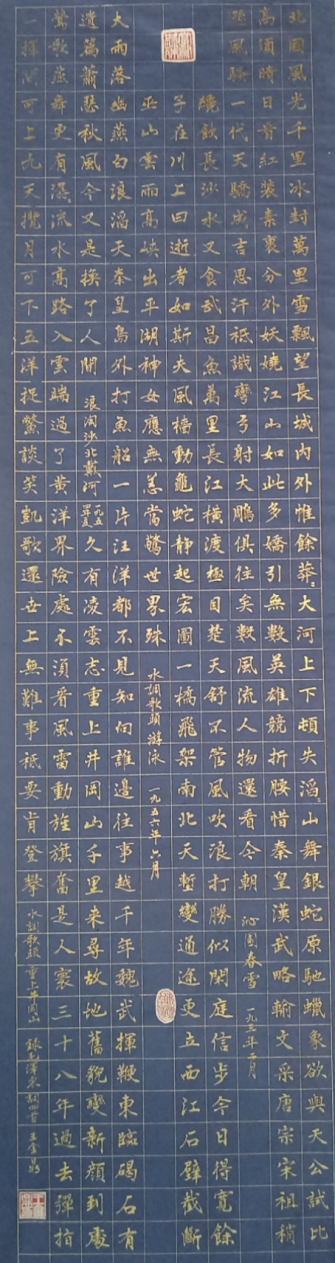 北國風光千里冰封萬里雪飄望長城內外惟餘莽〻大河上下頓失滔〻山舞銀蛇原馳蠟象欲與天公試比
高須晴日看紅裝素裹分外妖嬈江山如此多嬌引無數英雄競折腰惜秦皇漢武略輸文采唐宗宋祖稍
遜風騷一代天驕成吉思汗祗識彎弓射大鵰俱往矣數風流人物還看今朝 沁園春雪
纔飲長沙水又食武昌魚萬里長江橫渡極目楚天舒不管風吹浪打勝似閑庭信步今日得寬餘
子在川上曰逝者如斯夫風檣動龜蛇靜起宏圖一橋飛架南北天塹變通途更立西江石壁截斷
巫山雲雨高峽出平湖神女應無恙當驚世界殊 水調歌頭 游泳 一九五六年六月
大雨落幽燕白浪滔天秦皇島外打魚船一片汪洋都不見知向誰邊往事越千年魏武揮鞭東臨碣石有
遺篇蕭瑟秋風今又是換了人間 浪淘沙北戴河 一九五四年夏 久有凌雲志重上井岡山千里來尋故地舊貌變新顏到處
鶯歌燕舞更有潺流水高路入雲端過了黃洋界險處不須看風雷動旌旗奮是人寰三十八年過去彈指
一揮間可上九天攬月可下五洋捉鱉談笑凱歌還世上無難事祗要肯登攀 水調歌頭 重上井岡山 錄毛澤東詞四首